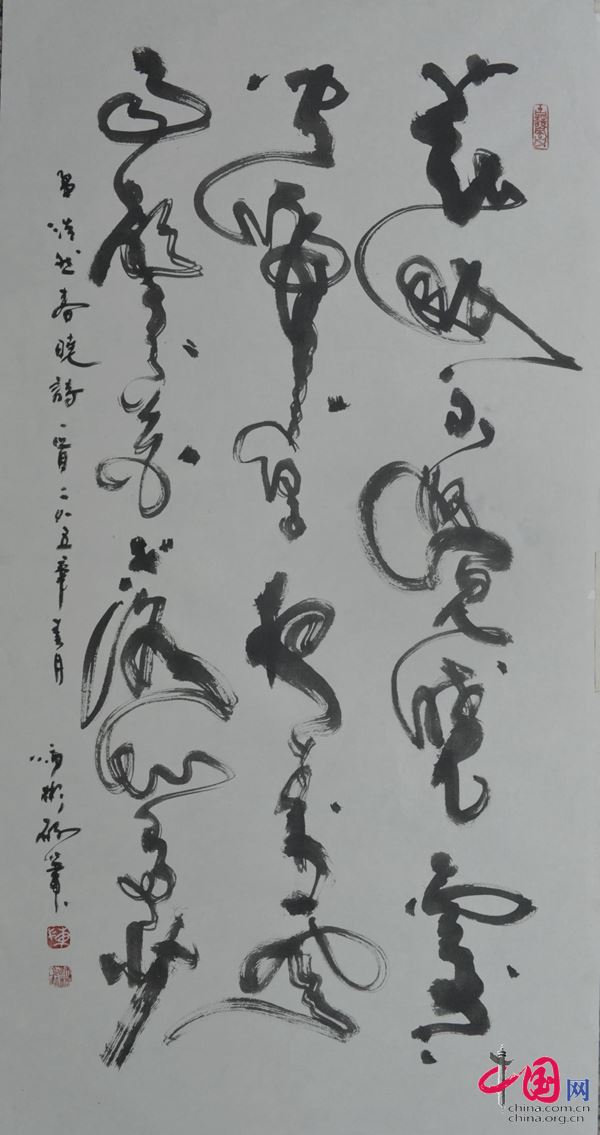 春眠不覺曉處處
聞啼鳥夜來風
雨聲花落知多少
孟浩然春曉詩一首
中国网
china.com.cn
china.org.cn